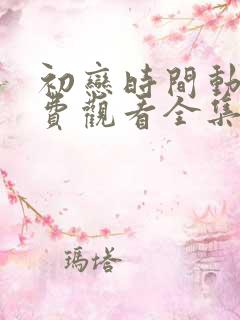 初戀時間動
費觀看全集
瑪塔